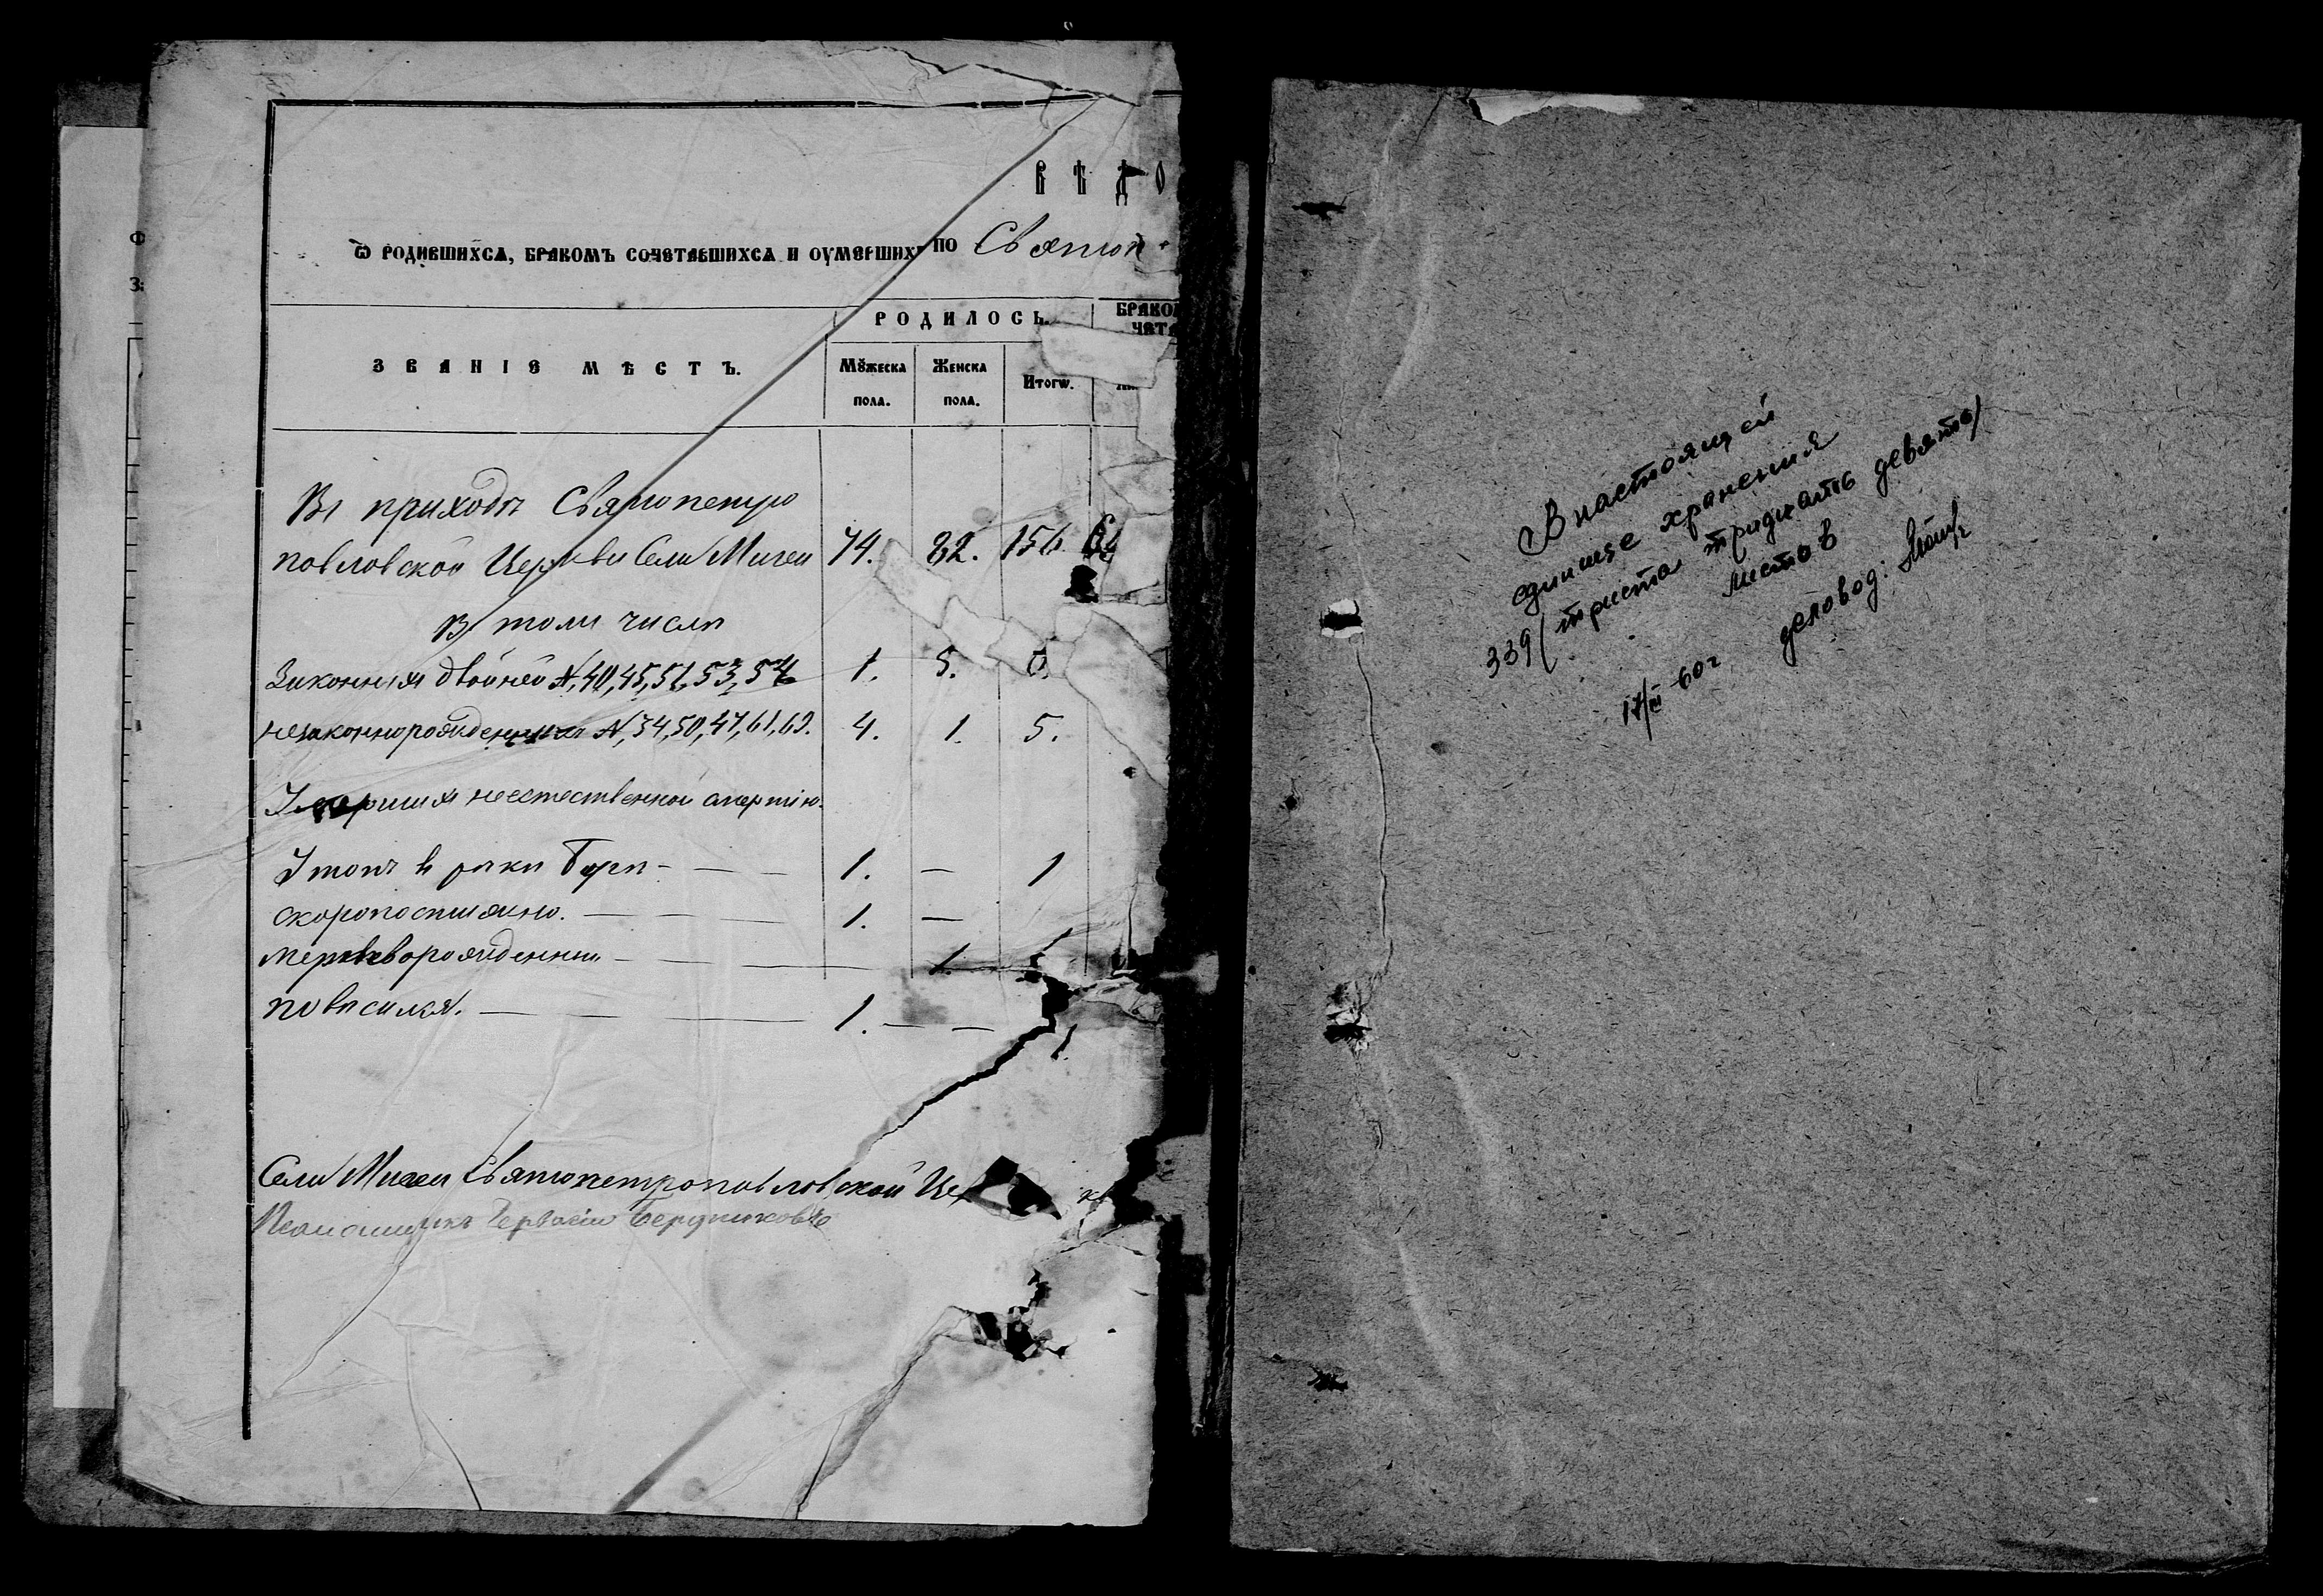 ВѢДО
Ѿ РОДИВШИХСѦ, БРАКОМЪ СОЧЕТАВШИХСѦ И ОУМЕРШИХЪ ПО Святоп
ЗВАНІЕ МѢСТЪ.
РОДИЛОСЬ.
БРАКОМ
ЧЕТА
Мꙋжеска пола.
Женска пола.
Итогѡ.
Въ приходѣ Святопетро
павловской Церкви Села Мигеи 74. 82. 156.
В томъ числѣ
Законныя двойней №, 40, 45, 51, 53, 54 1. 5. 6.
незаконнорожденныхъ №, 34, 50, 47, 61, 62. 4. 1. 5.
Умершия неестественной смертію.
Утопъ в рѣки Бугѣ - — — 1. — 1
скоропостижно. — — — 1. —
мертворожденни - — — 1. 1
повѣсился. — — — 1. — — 1.
Села Мигеи Святопетропавловской Це
Псаломщикъ Гервасій Бердниковъ
В настоящей
единице хранения
339 (триста тридцать девять)
листов
деловод:
17/III-60г